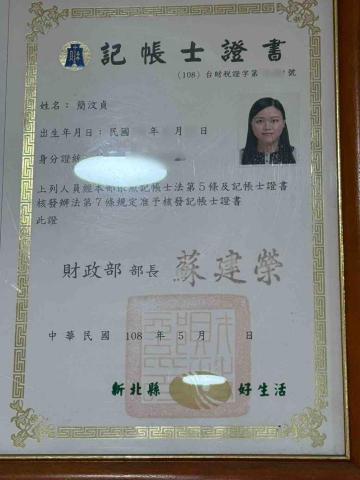 記帳士證書
(108) 台財稅證字第 號
姓名：簡汶貞
出生年月日：民國 年 月 日
身分證統
上列人員經本部依照記帳士法第5條及記帳士證書
核發辦法第7條規定准予核發記帳士證書
此證
財政部 部長 蘇建榮
中華民國 108 年 5 月 日
新北縣 好生活